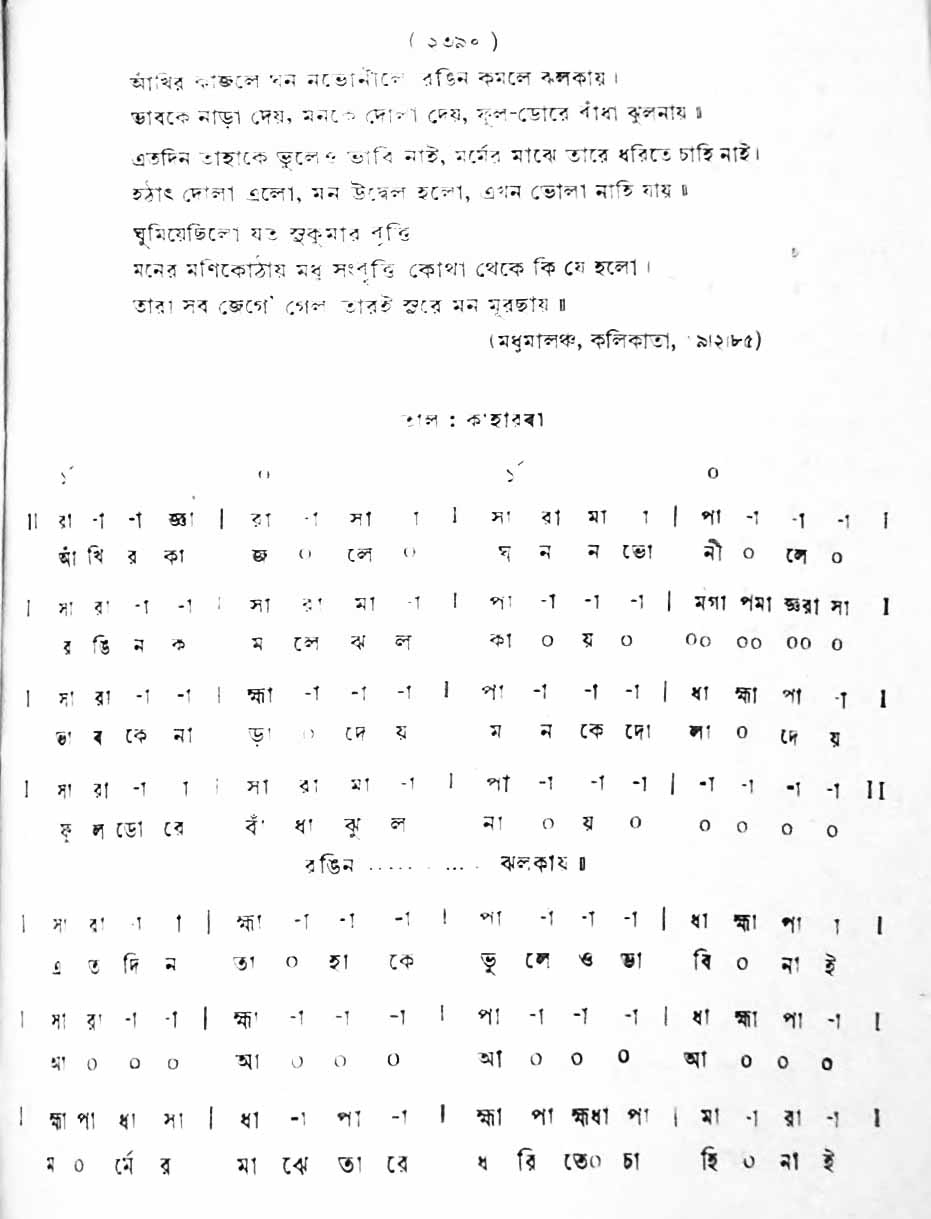 ( ২৩৯০ )
আঁখির কাজলে ঘন নভোনীলে রঙিন কমলে ঝলকায় ।
ভাবকে নাড়া দেয়, মনকে দোলা দেয়, ফুল-ডোরে বাঁধা ঝুলনায় ॥
এতদিন তাহাকে ভুলেও ভাবি নাই, মর্মের মাঝে তারে ধরিতে চাহি নাই ।
হঠাৎ দোলা এলো, মন উদ্বেল হলো, এখন ভোলা নাহি যায় ॥
ঘুমিয়েছিলো যত সুকুমার বৃত্তি
মনের মণিকোঠায় মধু সংবৃত্তি কোথা থেকে কি যে হলো ।
তারা সব জেগে গেল তারই সুরে মন মূরছায় ॥
(মধুমালঞ্চ, কলিকাতা, ৯।২।৮৫)
তাল : কাহারবা
১´ ০ ১´ ০
II রা -া -া জ্ঞা | রা -া সা া I সা রা মা া | পা -া -া -া I
আঁ খি র কা জ ০ লে ০ ঘ ন ন ভো নী ০ লে ০
I সা রা -া -া | সা রা মা -া I পা -া -া -া | মগা পমা জ্ঞরা সা I
র ঙি ন ক ম লে ঝ ল কা ০ য় ০ ০০ ০০ ০০ ০
I সা রা -া -া | হ্মা -া -া -া I পা -া -া -া | ধা হ্মা পা -া I
ভা ব কে না ড়া ০ দে য় ম ন কে দো লা ০ দে য়
I সা রা -া া | সা রা মা -া I পা -া -া -া | -া -া -া -া II
ফু ল ডো রে বাঁ ধা ঝু ল না ০ য় ০ ০ ০ ০ ০
রঙিন .......... ঝলকায় ॥
I সা রা -া া | হ্মা -া -া -া I পা -া -া -া | ধা হ্মা পা া I
এ ত দি ন তা ০ হা কে ভু লে ও ভা বি ০ না ই
I সা রা -া -া | হ্মা -া -া -া I পা -া -া -া | ধা হ্মা পা -া I
আ ০ ০ ০ আ ০ ০ ০ আ ০ ০ ০ আ ০ ০ ০
I হ্মা পা ধা সা | ধা -া পা -া I হ্মা পা হ্মধা পা | মা -া রা -া I
ম ০ র্মে র মা ঝে তা রে ধ রি তে০ চা হি ০ না ই